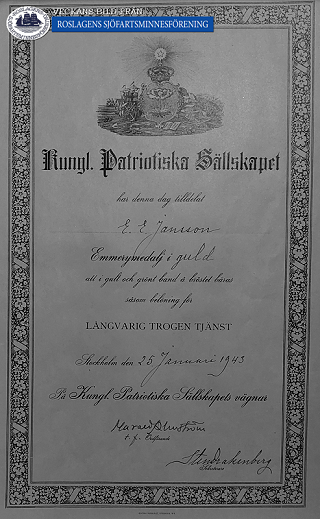 VECKANS BILD FRÅN
ROSLAGENS SJÖFARTSMINNESFÖRENING
Kungl. Patriotiska Sällskapet
har denna dag tilldelat
E. E. Jansson
Emmerymedalj i guld
att i gult och grönt band å bröstet bäras
såsom belöning för
LÅNGVARIG TROGEN TJÄNST
Stockholm den 25 Januari 1943
På Kungl. Patriotiska Sällskapets vägnar
Harald Almström
t. f. Ordförande
Sten Drakenberg
Sekreterare